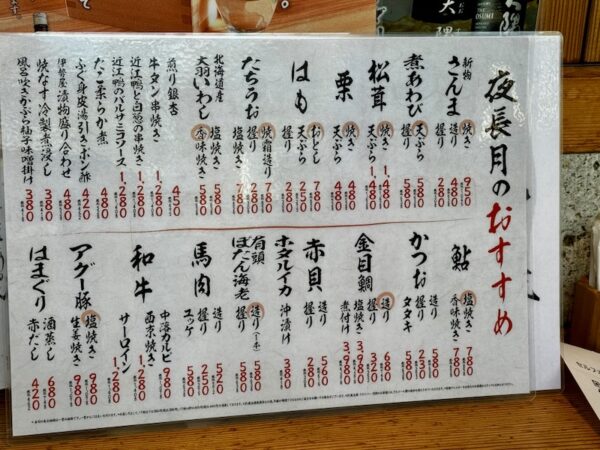 夜長月のおすすめ
新物
さんま
焼き 950
造り 480
握り 280
煮あわび
天ぷら 580
握り
松茸
焼き 1,480
天ぷら 1,480
栗
焼き 480
天ぷら 480
はも
おとし 780
天ぷら 580
握り 280
たちうお
焼霜造り 780
握り 280
塩焼き 780
北海道産
大羽いわし
塩焼き 580
香味焼き 580
煎り銀杏 450
牛タン串焼き 1,280
近江鴨と白葱の串焼き 1,280
近江鴨のバルサミコソース 1,280
たこ柔らか煮 480
ふぐ身皮湯引きポン酢 480
伊勢屋漬物盛り合わせ 480
焼なす冷製煮浸し 380
風呂吹きかぶら柚子味噌掛け 380
鮎
塩焼き 780
香味焼き 780
かつお
造り
握り
タタキ
金目鯛
造り 680
握り 320
塩焼き 3,980
煮付け 3,980
赤貝
造り 560
握り
ホタルイカ
沖漬け 380
有頭
ぼたん海老
造り 580
握り 580
馬肉
造り 520
握り 250
ユッケ 580
和牛
中落カルビ 980
西京焼き 1,280
サーロイン 1,280
アグー豚
塩焼き 980
生姜焼き 980
はまぐり
酒蒸し 680
赤だし 420